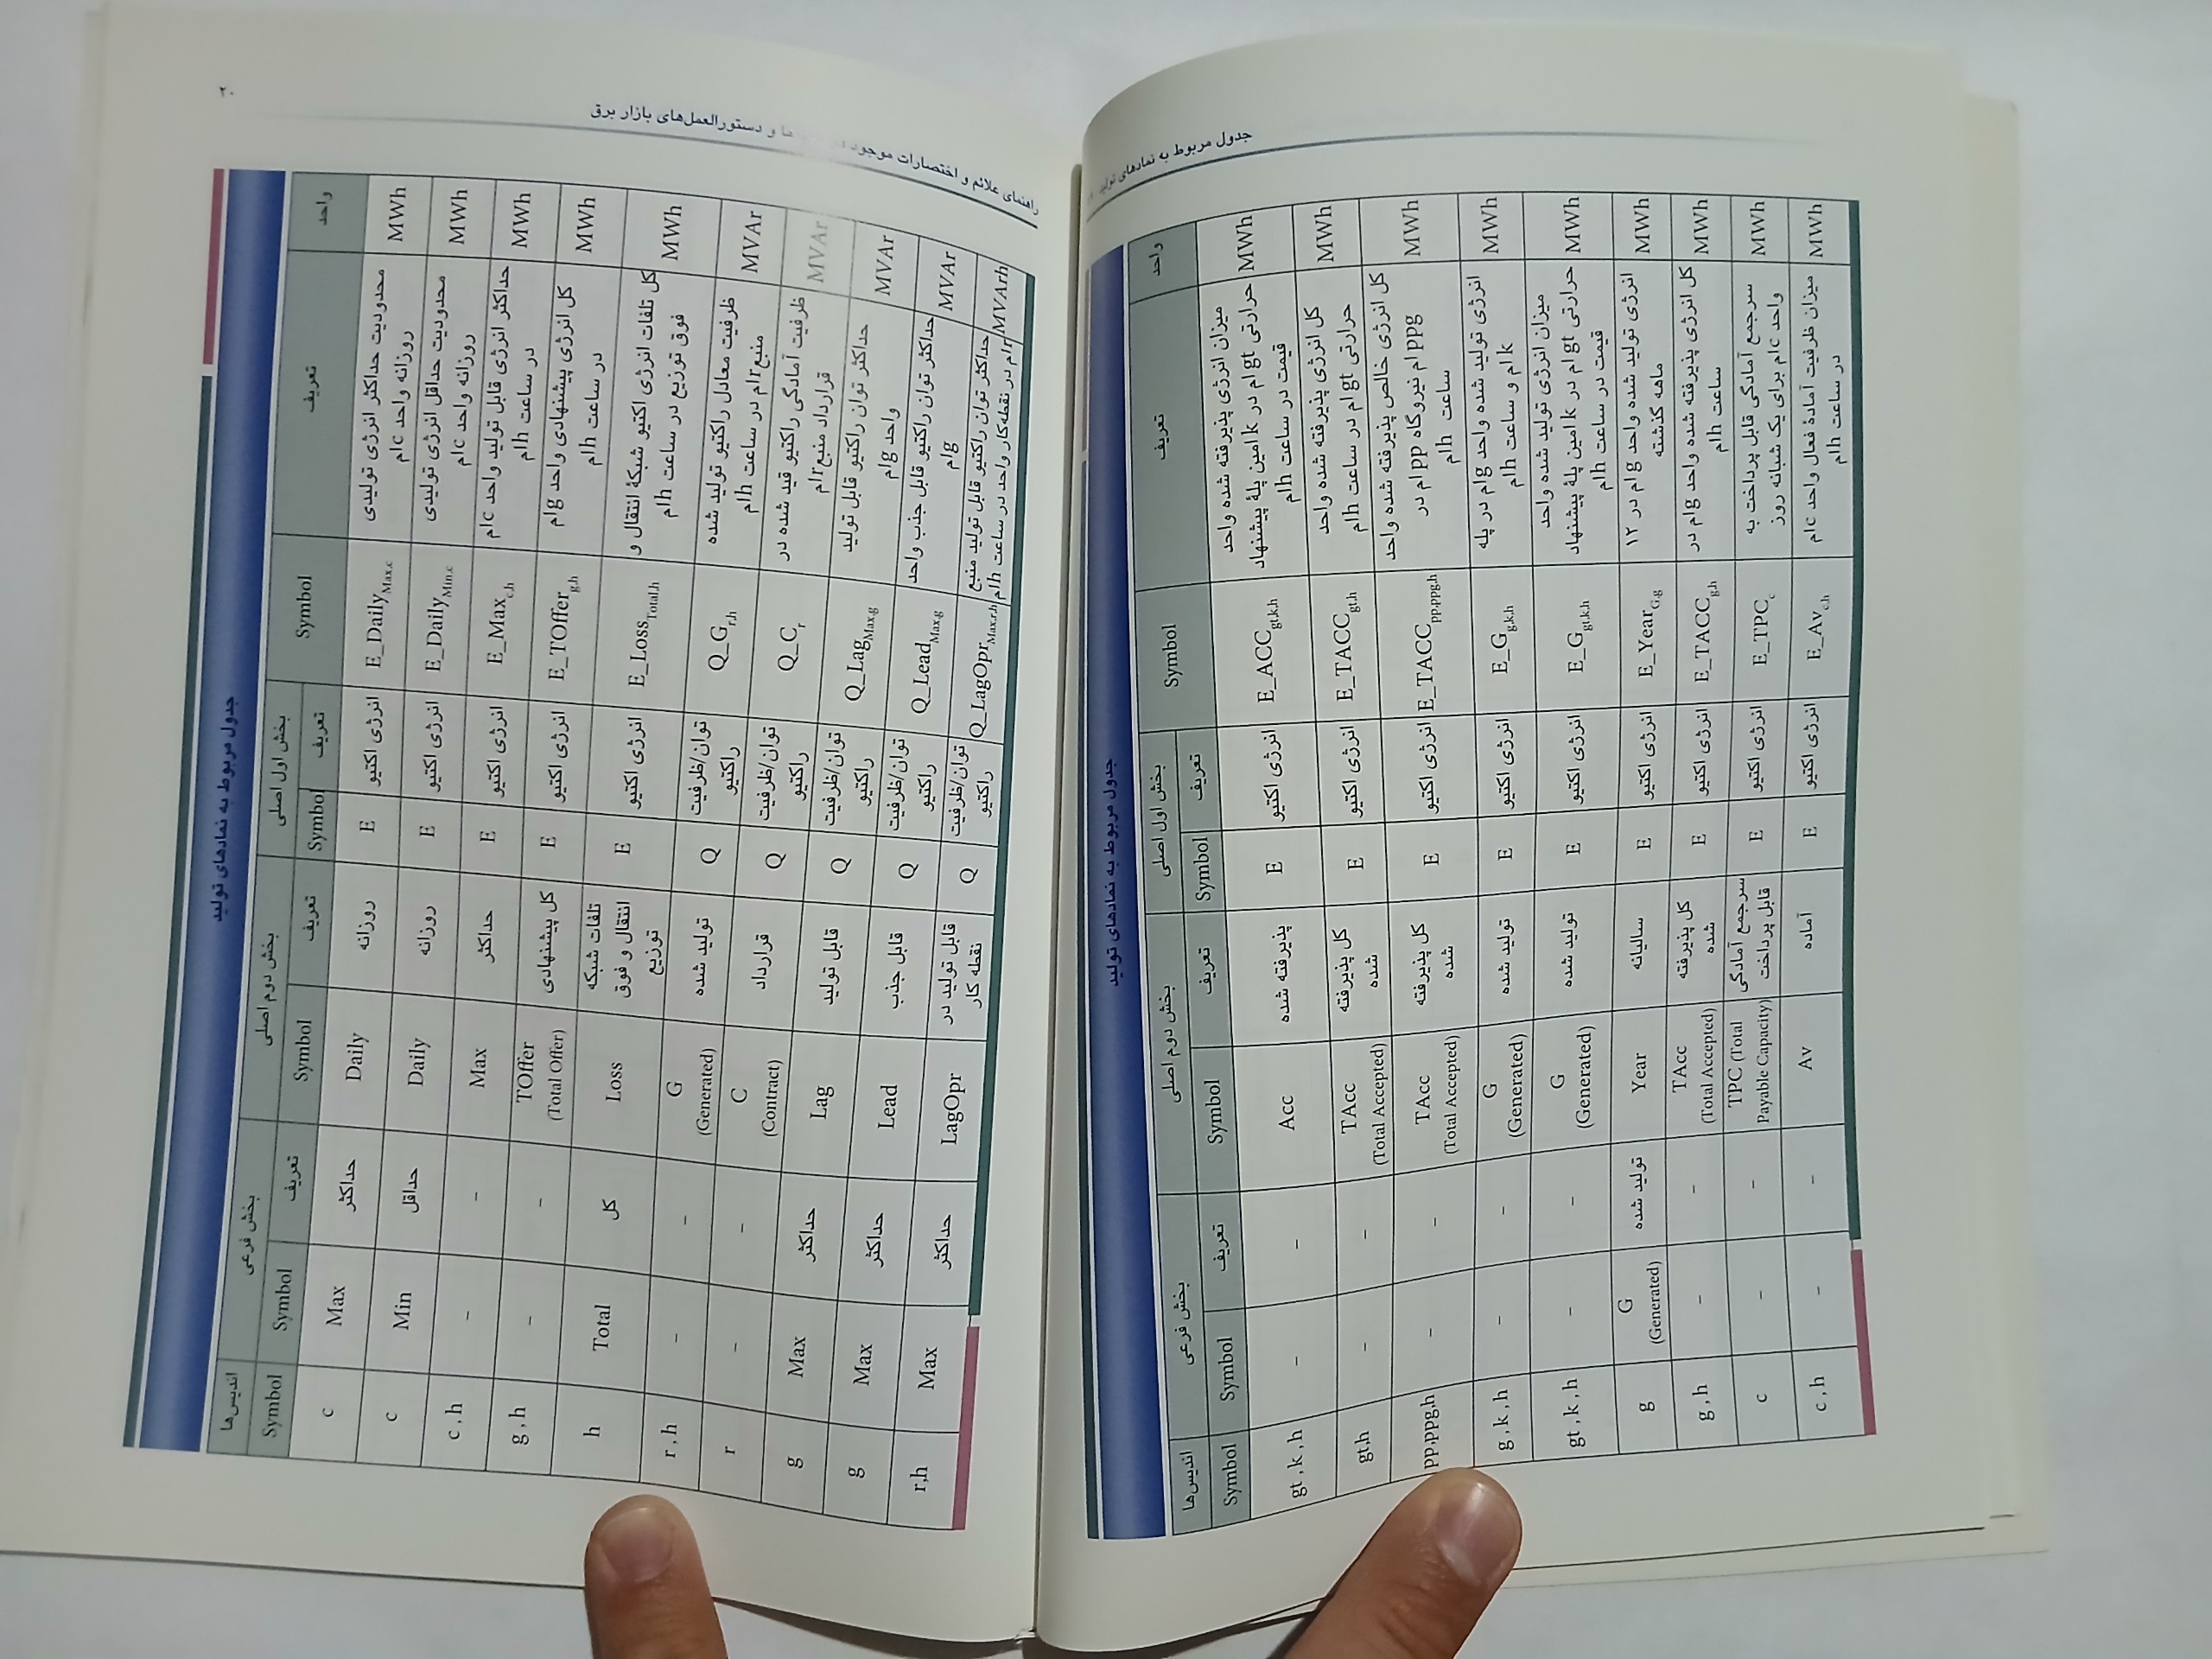 ۲۰
راهنمای علائم و اختصارات موجود و دستورالعمل‌های بازار برق
جدول مربوط به نمادهای تولید
اندیس‌ها بخش فرعی بخش دوم اصلی بخش اول اصلی Symbol تعریف واحد
Symbol Symbol تعریف Symbol تعریف Symbol تعریف
c Max حداکثر Daily روزانه E انرژی اکتیو E_Daily Max,c محدودیت حداکثر انرژی تولیدی MWh
روزانه واحد cام
c Min حداقل Daily روزانه E انرژی اکتیو E_Daily Min,c محدودیت حداقل انرژی تولیدی MWh
روزانه واحد cام
c , h – – Max حداکثر E انرژی اکتیو E_Max c,h حداکثر انرژی قابل تولید واحد cام MWh
در ساعت hام
g , h – – TOffer کل پیشنهادی E انرژی اکتیو E_TOffer g,h کل انرژی پیشنهادی واحد gام MWh
(Total Offer) در ساعت hام
h Total کل Loss تلفات شبکه E انرژی اکتیو E_Loss Total,h کل تلفات انرژی اکتیو شبکهٔ انتقال و MWh
انتقال و فوق فوق توزیع در ساعت hام
توزیع
r , h – – G تولید شده Q توان/ظرفیت Q_G r,h ظرفیت معادل راکتیو تولید شده MVAr
(Generated) راکتیو منبع rام در ساعت hام
r – – C قرارداد Q توان/ظرفیت Q_C r ظرفیت آمادگی راکتیو قید شده در MVAr
(Contract) راکتیو قرارداد منبع rام
g Max حداکثر Lag قابل تولید Q توان/ظرفیت Q_Lag Max,g حداکثر توان راکتیو قابل تولید MVAr
راکتیو واحد gام
g Max حداکثر Lead قابل جذب Q توان/ظرفیت Q_Lead Max,g حداکثر توان راکتیو قابل جذب واحد MVAr
راکتیو gام
r,h Max حداکثر LagOpr قابل تولید در Q توان/ظرفیت Q_LagOpr Max,r,h حداکثر توان راکتیو قابل تولید منبع MVArh
نقطه کار راکتیو rام در نقطه‌کار واحد در ساعت hام
جدول مربوط به نمادهای تولید
جدول مربوط به نمادهای تولید
اندیس‌ها بخش فرعی بخش دوم اصلی بخش اول اصلی Symbol تعریف واحد
Symbol Symbol تعریف Symbol تعریف Symbol تعریف
gt , k , h – – Acc پذیرفته شده E انرژی اکتیو E_ACC gt,k,h میزان انرژی پذیرفته شده واحد MWh
حرارتی gt ام در k امین پلهٔ پیشنهاد
قیمت در ساعت hام
gt,h – – TAcc کل پذیرفته E انرژی اکتیو E_TACC gt,h کل انرژی پذیرفته شده واحد MWh
(Total Accepted) شده حرارتی gt ام در ساعت hام
pp,ppg,h – – TAcc کل پذیرفته E انرژی اکتیو E_TACC pp,ppg,h کل انرژی خالص پذیرفته شده واحد MWh
(Total Accepted) شده ppg ام نیروگاه pp ام در
ساعت hام
g , k , h – – G تولید شده E انرژی اکتیو E_G g,k,h انرژی تولید شده واحد gام در پله MWh
(Generated) k ام و ساعت hام
gt , k , h – – G تولید شده E انرژی اکتیو E_G gt,k,h میزان انرژی تولید شده واحد MWh
(Generated) حرارتی gt ام در k امین پلهٔ پیشنهاد
قیمت در ساعت hام
g G تولید شده Year سالیانه E انرژی اکتیو E_Year G,g انرژی تولید شده واحد gام در ۱۲ MWh
(Generated) ماهه گذشته
g , h – – TAcc کل پذیرفته E انرژی اکتیو E_TACC g,h کل انرژی پذیرفته شده واحد gام در MWh
(Total Accepted) شده ساعت hام
c – – TPC (Total سرجمع آمادگی E انرژی اکتیو E_TPC c سرجمع آمادگی قابل پرداخت به MWh
Payable Capacity) قابل پرداخت واحد cام برای یک شبانه روز
c , h – – Av آماده E انرژی اکتیو E_Av c,h میزان ظرفیت آمادهٔ فعال واحد cام MWh
در ساعت hام